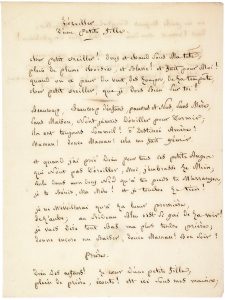 L'oreiller
d'une petite fille.
Cher petit oreiller ! doux et chaud sous ma tête,
plein de plume choisie, et blanc ! et fait pour moi !
quand on a peur du vent, des loups, de la tempête,
cher petit oreiller que je dors bien sur toi !
Beaucoup, beaucoup d'enfants pauvres et nus, sans mère,
sans maison, n'ont jamais d'oreiller pour dormir,
ils ont toujours sommeil ! Ô destinée amère !
Maman ! douce Maman ! cela me fait gémir
et quand j'ai prié Dieu pour tous ces petits anges
qui n'ont pas d'oreiller, moi j'embrasse le mien,
seule dans mon doux nid qu'à tes pieds tu m'arranges,
je te bénis, ma mère ! et je touche le tien !
je ne m'éveillerai qu'à la lueur première
de l'aube, au rideau bleu c'est si gai de la voir !
je vais dire tout bas ma plus tendre prière,
donne encore un baiser, douce Maman ! bon soir !
Prière.
Dieu des enfants ! le cœur d'une petite fille,
plein de prière, écoute ! est ici sous mes mains,